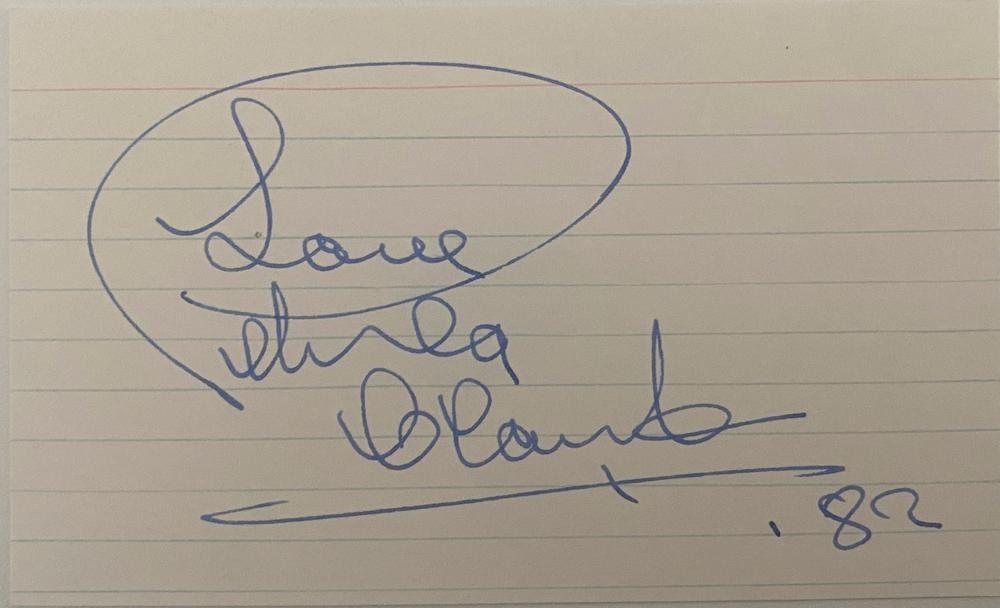 Love
Petula
Clark
'82